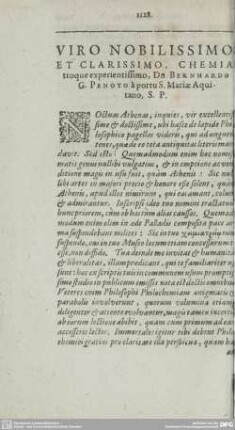 1128.
VIRO NOBILISSIMO
ET CLARISSIMO, CHEMIA
troque experientissimo, Dn BERNHARDO
G. PENOTO à portu S. Mariæ Aqui-
tano, S. P.
NOctuas Athenas, inquies, vir excellentis-
sime & doctissime, ubi hasce de lapide Philo-
losophico pagellas videris, qui ad unguem
tenes, quæ de eo tota antiquitas literis man-
davit. Sed esto: Quemadmodum enim hoc nomis-
matis genus nullibi vulgatius, & in emptione ac ven-
ditione magis in usu fuit, quàm Athenis: Sic nul-
libi artes in majori precio & honore esse solent, quàm
Athenis, apud illos nimirum, qui eas amant, colunt
& admirantur. Inscripsi ideo tuo nomini tractatum
hunc priorem, cùm ob
modum enim olim in æde Palladis composita pace ar-
ma suspendebant milites: Sic
suspendo, cui in tuo Musæo locum etiam concessurum te
esse, non diffido. Tua deinde me invitat & humanitas
& liberalitas, illam prædicant, qui te familiariter
sunt: hac ex scriptis tuis in communem usum
simo studio in publicum emissis nota est doctis omnibus
Veteres enim Philosophi Philochemicos ænigmatis &
parabolis involverunt, quorum volumina etiam
diligenter & attentè evolvantur, magis tamen incertus
ab eorum lectione abibit, quàm cum primum ad eam
accesserit lector. Immortales igitur tibi debent Philo-
chemici gratias pro claritate illa perspicua, quam